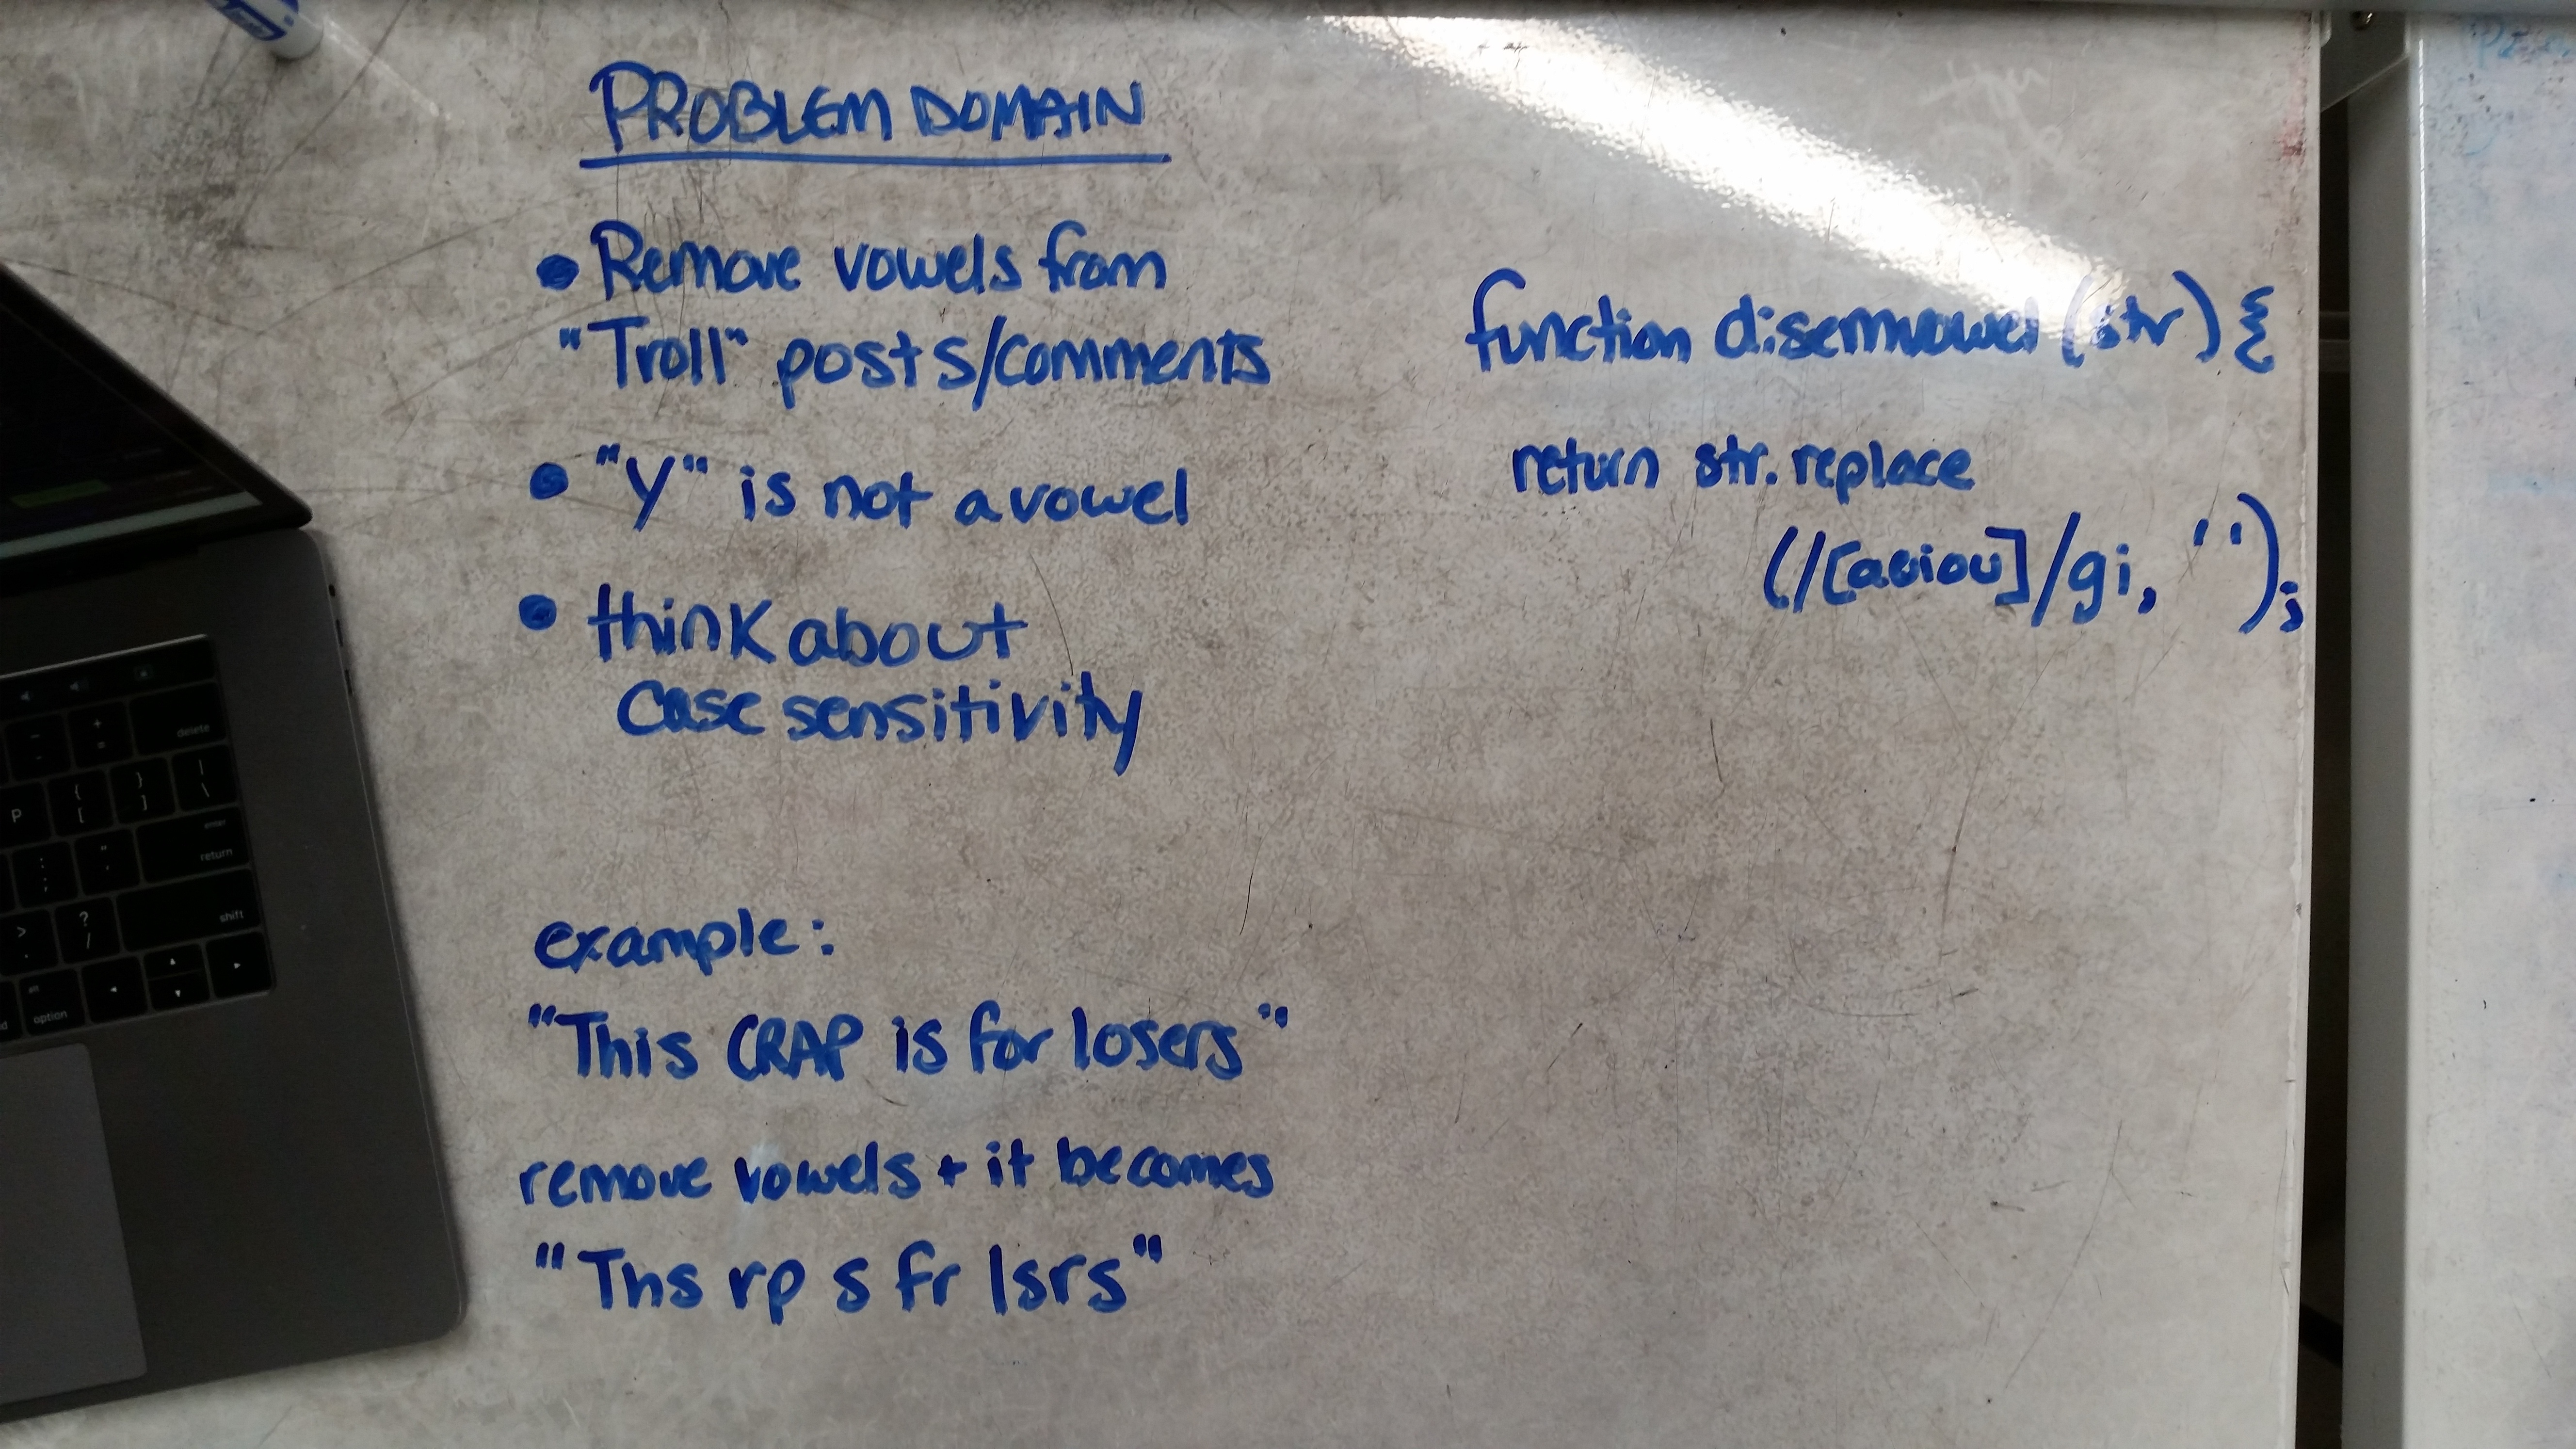 PROBLEM DOMAIN
• Remove vowels from
"Troll" posts/comments
• "Y" is not a vowel
• think about
case sensitivity
example:
"This CRAP is for losers"
remove vowels + it becomes
"Ths rp s fr lsrs"
function disemvowel (str) {
return str.replace
(/[aeiou]/gi, '');
delete
P
{
[
}
]
|
\
enter
return
shift
alt
option